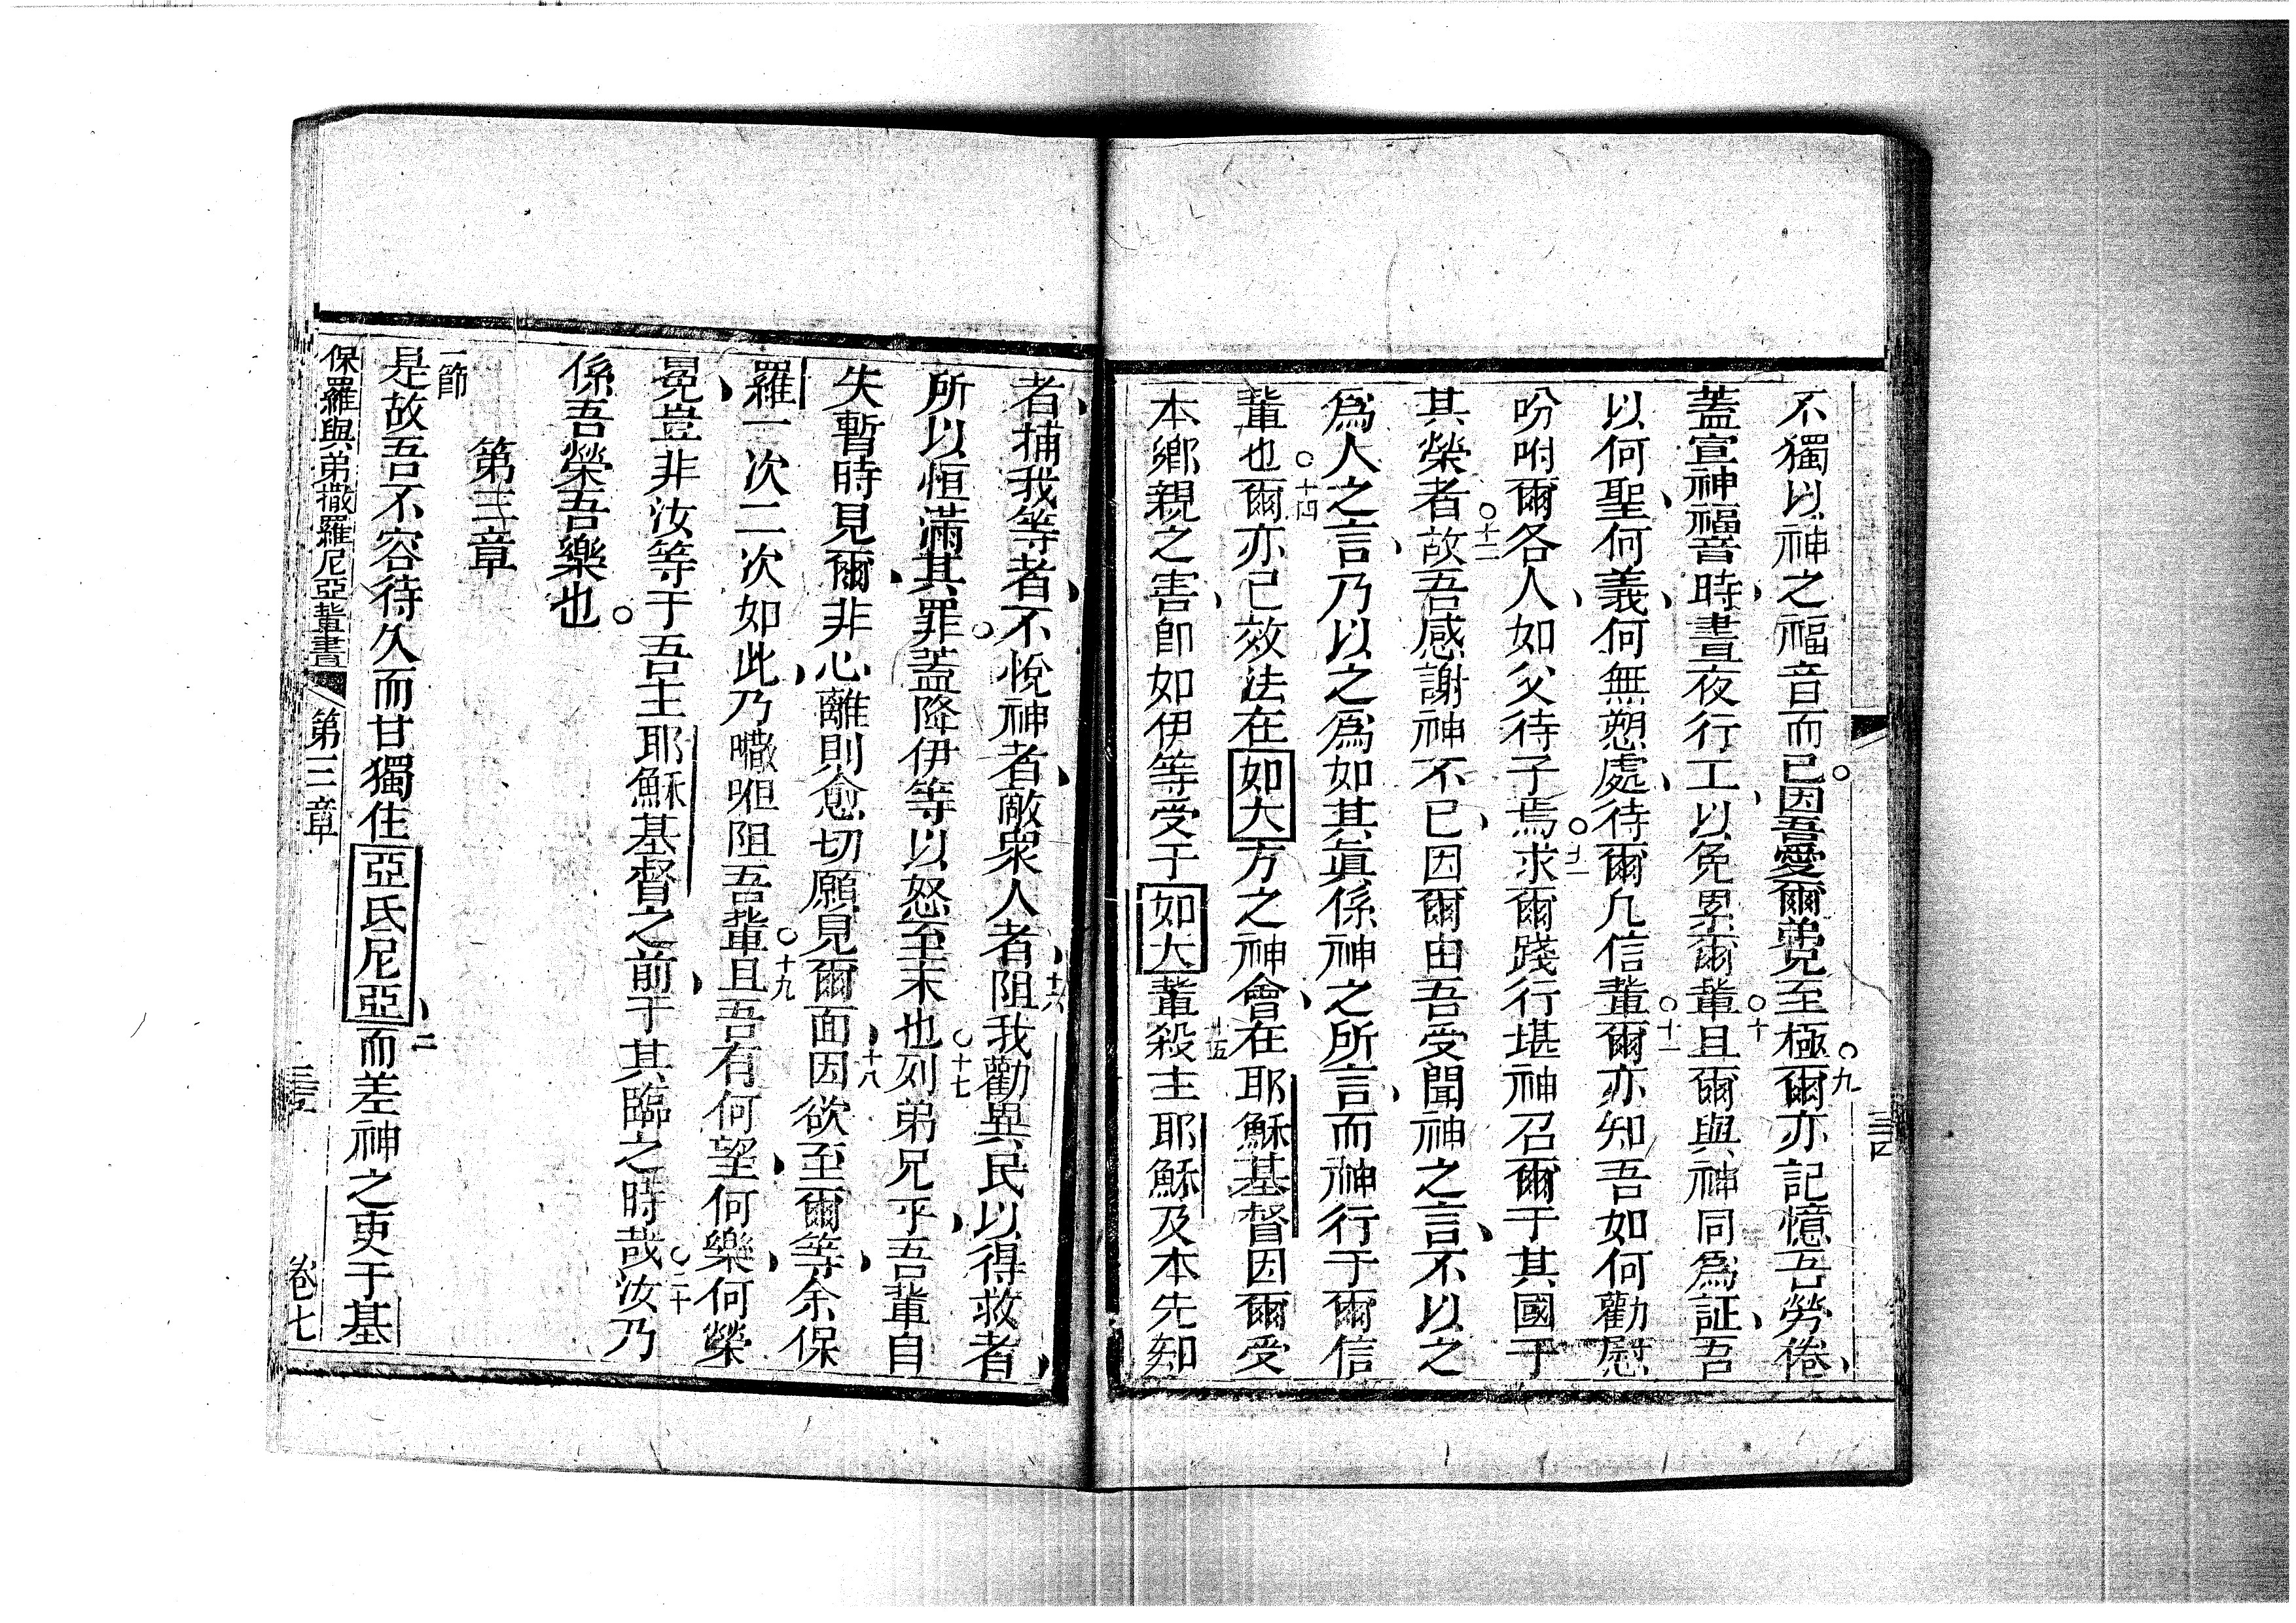 不獨以神之福音而已。因吾愛爾弟兄至極。九爾亦記憶吾勞倦、
蓋宣神福音時、晝夜行工、以免累爾輩。十且爾與神同為証、吾
以何聖、何義、何無愬處、待爾凡信輩。十一爾亦知吾如何勸慰
吩咐爾各人、如父待子焉。十二求爾踐行堪神召爾于其國于
其榮者。十三故吾感謝神不已、因爾由吾受聞神之言、不以之
爲人之言、乃以之爲如其眞係神之所言、而神行于爾信
輩也。十四爾亦已效法在如大方之神會、在耶穌基督因爾受
本鄉親之害、卽如伊等受于如大輩十五殺主耶穌及本先知
者、捕我等者、不悅神者、敵衆人者、十六阻我勸異民以得救者、
所以恒滿其罪。蓋降伊等以怒至末也。十七列弟兄乎、吾輩自
失暫時見爾、非心離、則愈切願見爾面、十八因欲至爾等、余保
羅一次二次如此、乃𠾀呾阻吾輩。十九且吾有何望、何樂、何榮
冕、豈非汝等于吾主耶穌基督之前、于其臨之時哉。二十汝乃
係吾榮吾樂也。
第三章
一節
是故吾不容待久而甘獨住亞氏尼亞、二而差神之吏于基
保羅與弟撒羅尼亞輩書 第三章 卷七